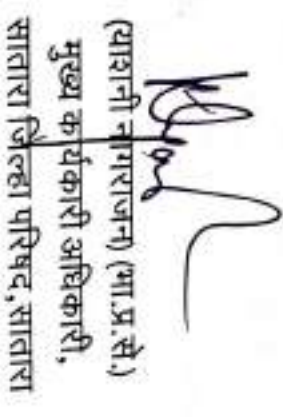 (याशनी नागराजन) (भा.प्र.से.)
मुख्य कार्यकारी अधिकारी,
सातारा जिल्हा परिषद,सातारा